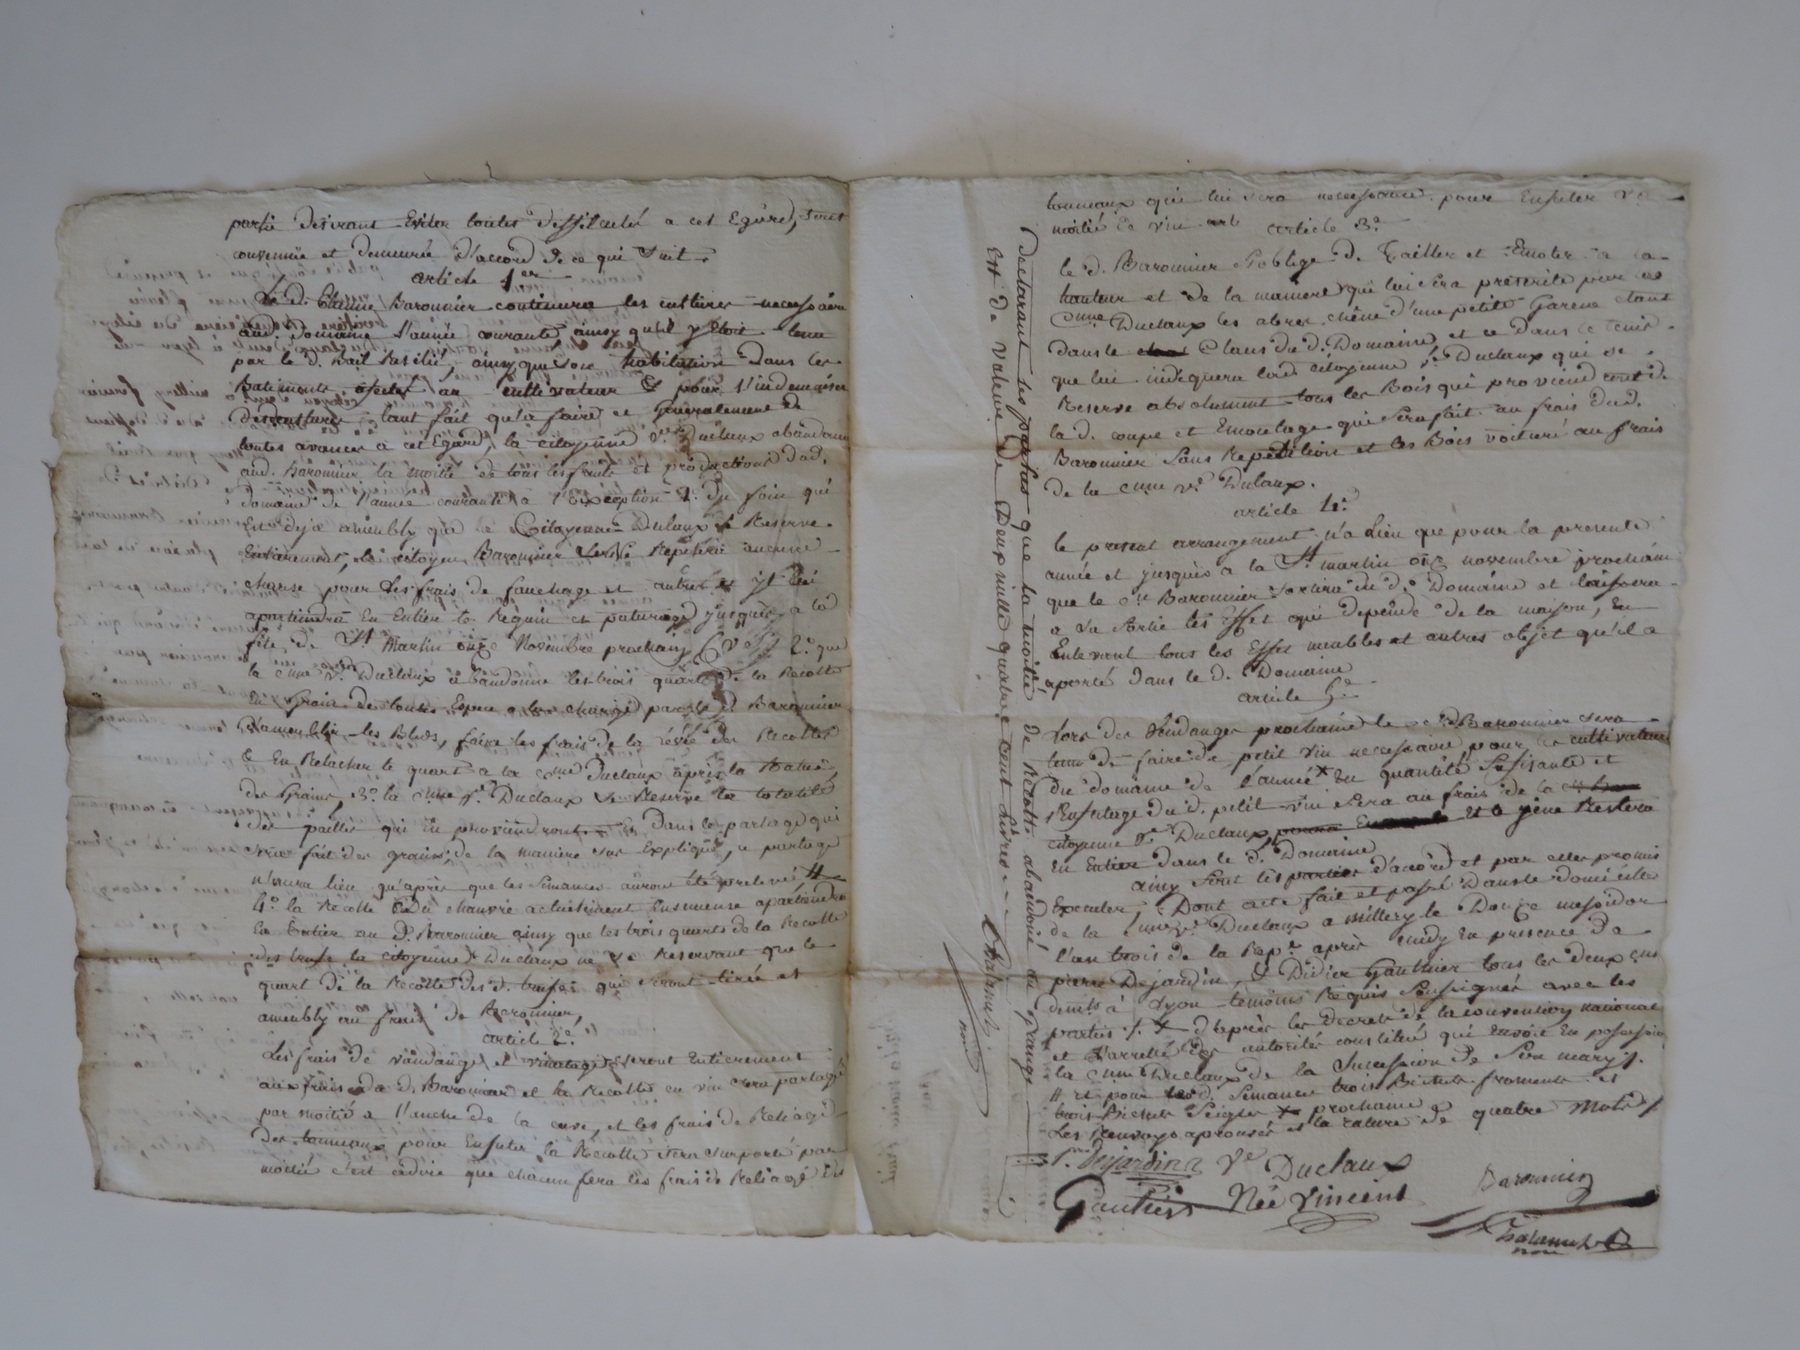 partie desirant Eviter toutes diffilcultés a cet Egard, sont
convenüe et demeurée d'accord de ce qui Suit.
article 1er
Le d. Etienne Baronnier continuera les cultures necessaire
aud. Domaine l'année courante ainsy qu'il y etoit tenu
par le d. bail Resilié, ainsy que son habitation dans les
Batiments au cultivateur & pour l'indemniser
des cultures tant fait qu'a faire et generalement de
toutes avances a cet Egard, la citoyenne Ve Duclaux abandonne
aud. Baronnier la moitié de tous les fruits et productions dud.
domaine de l'année courante a l'exception 1° du foin qui
Est deja amembly que la Citoyenne Duclaux se Reserve
Entierement, le citoyen Baronnier aucune
chause pour les frais de fauchage et autres et
apartiendra En Entier le Reguin et paturage jusques a la
fête de St Martin onze Novembre prochain 2° que
la cme Ve Duclaux abandonne les trois quarts de la Recolte
En grains de toutes Espece a la charge par le d. Baronnier
D'amemblir les Bleds, faire les frais de la levée des Recoltes
& En Relacher le quart a la cme Duclaux après la
des grains, 3° la cme Ve Duclaux se Reserve la totalité
des pailles qui En proviendront dans le partage qui
sera fait des grains, de la maniere sus Expliqué, ce partage
n'aura lieu qu'après que les Semances auront été prelevé #
4° la Recolte Du chauvre actuelement Ensemencé apartiendra
En Entier au d. Baronnier ainsy que les trois quarts de la Recolte
des trufe la citoyenne Duclaux ne se Reservant que le
quart de la Recolte des d. trufes qui seront tirée et
amembly au frais de Baronnier,
article 2e
Les frais de vandange et vinatage seront Entierement
aux frais de d. Baronnier et la Recolte en vin sera partagé
par moitié a l'anche de la cuve, et les frais de Reliage
des tonneaux pour Enfuter la Recolte sera suporté par
moitié c'est adire que chacun fera les frais de Reliage des
tonneaux qui lui sera necessaire pour Enfuter sa
moitié de vin article 3e
le d. Baronnier s'oblige de Tailler et Emoler a la
hauteur et de la maniere qui lui sera prescrite par la
Cme Duclaux les abres chêne d'une petite Garene etant
dans le Claus du d. Domaine et ce dans le tems
que lui indiquera lad. citoyenne Ve Duclaux qui se
Reserve absolument tous les Bois qui proviendront de
la d. coupe et Emondage qui sera fait au frais dud.
Baronnier Sans Repetition et les Bois voituré au frais
de la cme Ve Dulaux.
article 4e
le present arrangement n'a lieu que pour la presente
année et jusques a la St martin onze novembre prochain
que le cn Baronnier sortira du d. Domaine et laissera
a sa sortie les Effet qui depende de la maison, En
Enlevant tous les Effet meubles et autres objet qu'il a
aporté dans le d. Domaine
article 5e
Lors des Vendanges prochaine le cn Baronnier sera
tenu de faire de petit vin necessaire pour les cultivateur
du domaine de l'année En quantité Sufisante et
l'Enfutage du d. petit vin sera au frais de la
citoyenne Ve Duclaux, et le gène Restera
En Entier dans le d. Domaine
ainsy sont les parties d'accord et par elles promis
Executer, Dont acte fait et passé dans le domicile
de la cme Ve Duclaux a millery le Douze messidor
l'an trois de la Repe après midy En presence de
pierre Dejardin, & Didier Gauthier tous les deux
a Lyon temoins Requis Soussignés avec les
parties ./. d'après les decrets de la convention national
et l'arreté des autorites constitué qui envoie En possession
la cme Duclaux de la Succession de Son mary ./.
# Et pour les d. Semances trois Bichets froment et
trois Bichets Seigle prochaine
Les Renvoys aprouvés & la rature de quatre Mots ./.
Pre Dejardin Ve Duclaux Baronnier
Gautier Née Vincent
Thalamel
nore
Declarant les parties que la moitié de Recolte abandoné au granger
Est de valeur de deux mille quatre cent livres.
Thalamel
nore